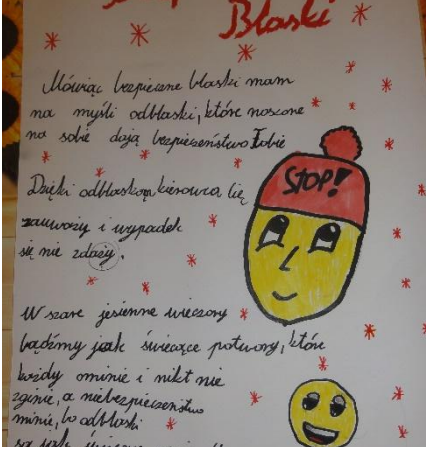 Blaski
Mówiąc bezpieczne blaski mam
na myśli odblaski, które noszone
na sobie dają bezpieczeństwo Tobie
Dzięki odblaskom kierowca Cię
zauważy i wypadek
się nie zdaży.
STOP!
W szare jesienne wieczory
bądźmy jak świecące potwory, które
każdy ominie i nikt nie
zginie, a niebezpieczeństwo
minie, bo odblaski
są jak